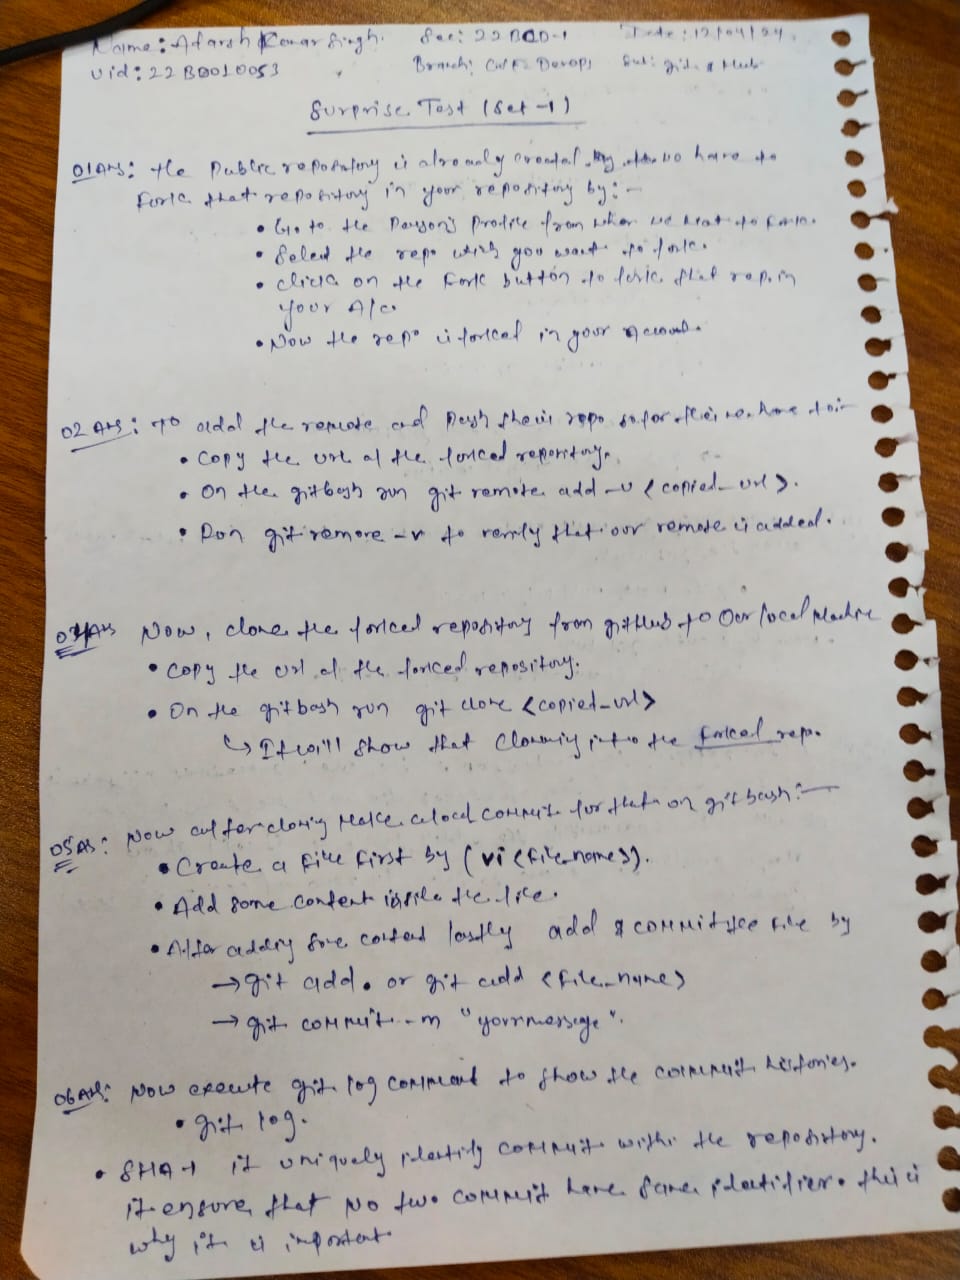 Name: Adarsh Kumar Singh. Sec: 22BCD-1 Date: 12/04/24
Uid: 22BDO10053 Branch: Devops Sub: git & Hub
Surprise Test (Set-1)
01Ans: the Public repository is already created. have to
Fork that repository in your repository by:-
• Go to the Person's Profile from whom we want to fork.
• Select the repo which you want to fork.
• click on the Fork button to fork that rep. in
your A/c.
• Now the repo is forked in your account.
02 Ans: To add the remote and Push repo so for this we have to:-
• Copy the url of the forked repository.
• On the gitbash run git remote add -v <copied_url>.
• Run git remore -v to verify that our remote is added.
Ans Now, clone the forked repository from github to Our local Machine
• Copy the url of the forked repository.
• On the gitbash run git clone <copied_url>
↳ It will show that Clonning into the forked rep.
05 As: Now after cloning Make a local commit for that on gitbash:—
• Create a file first by (vi <file_name>).
• Add some content inside the file.
• After adding some content lastly add & commit the file by
→ git add . or git add <file_name>
→ git commit -m "your message".
06 Ans: Now execute git log command to show the commit histories.
• git log.
• SHA-1 it uniquely identify commit within the repository.
it ensure that No two commit have same identifier. this is
why it is important